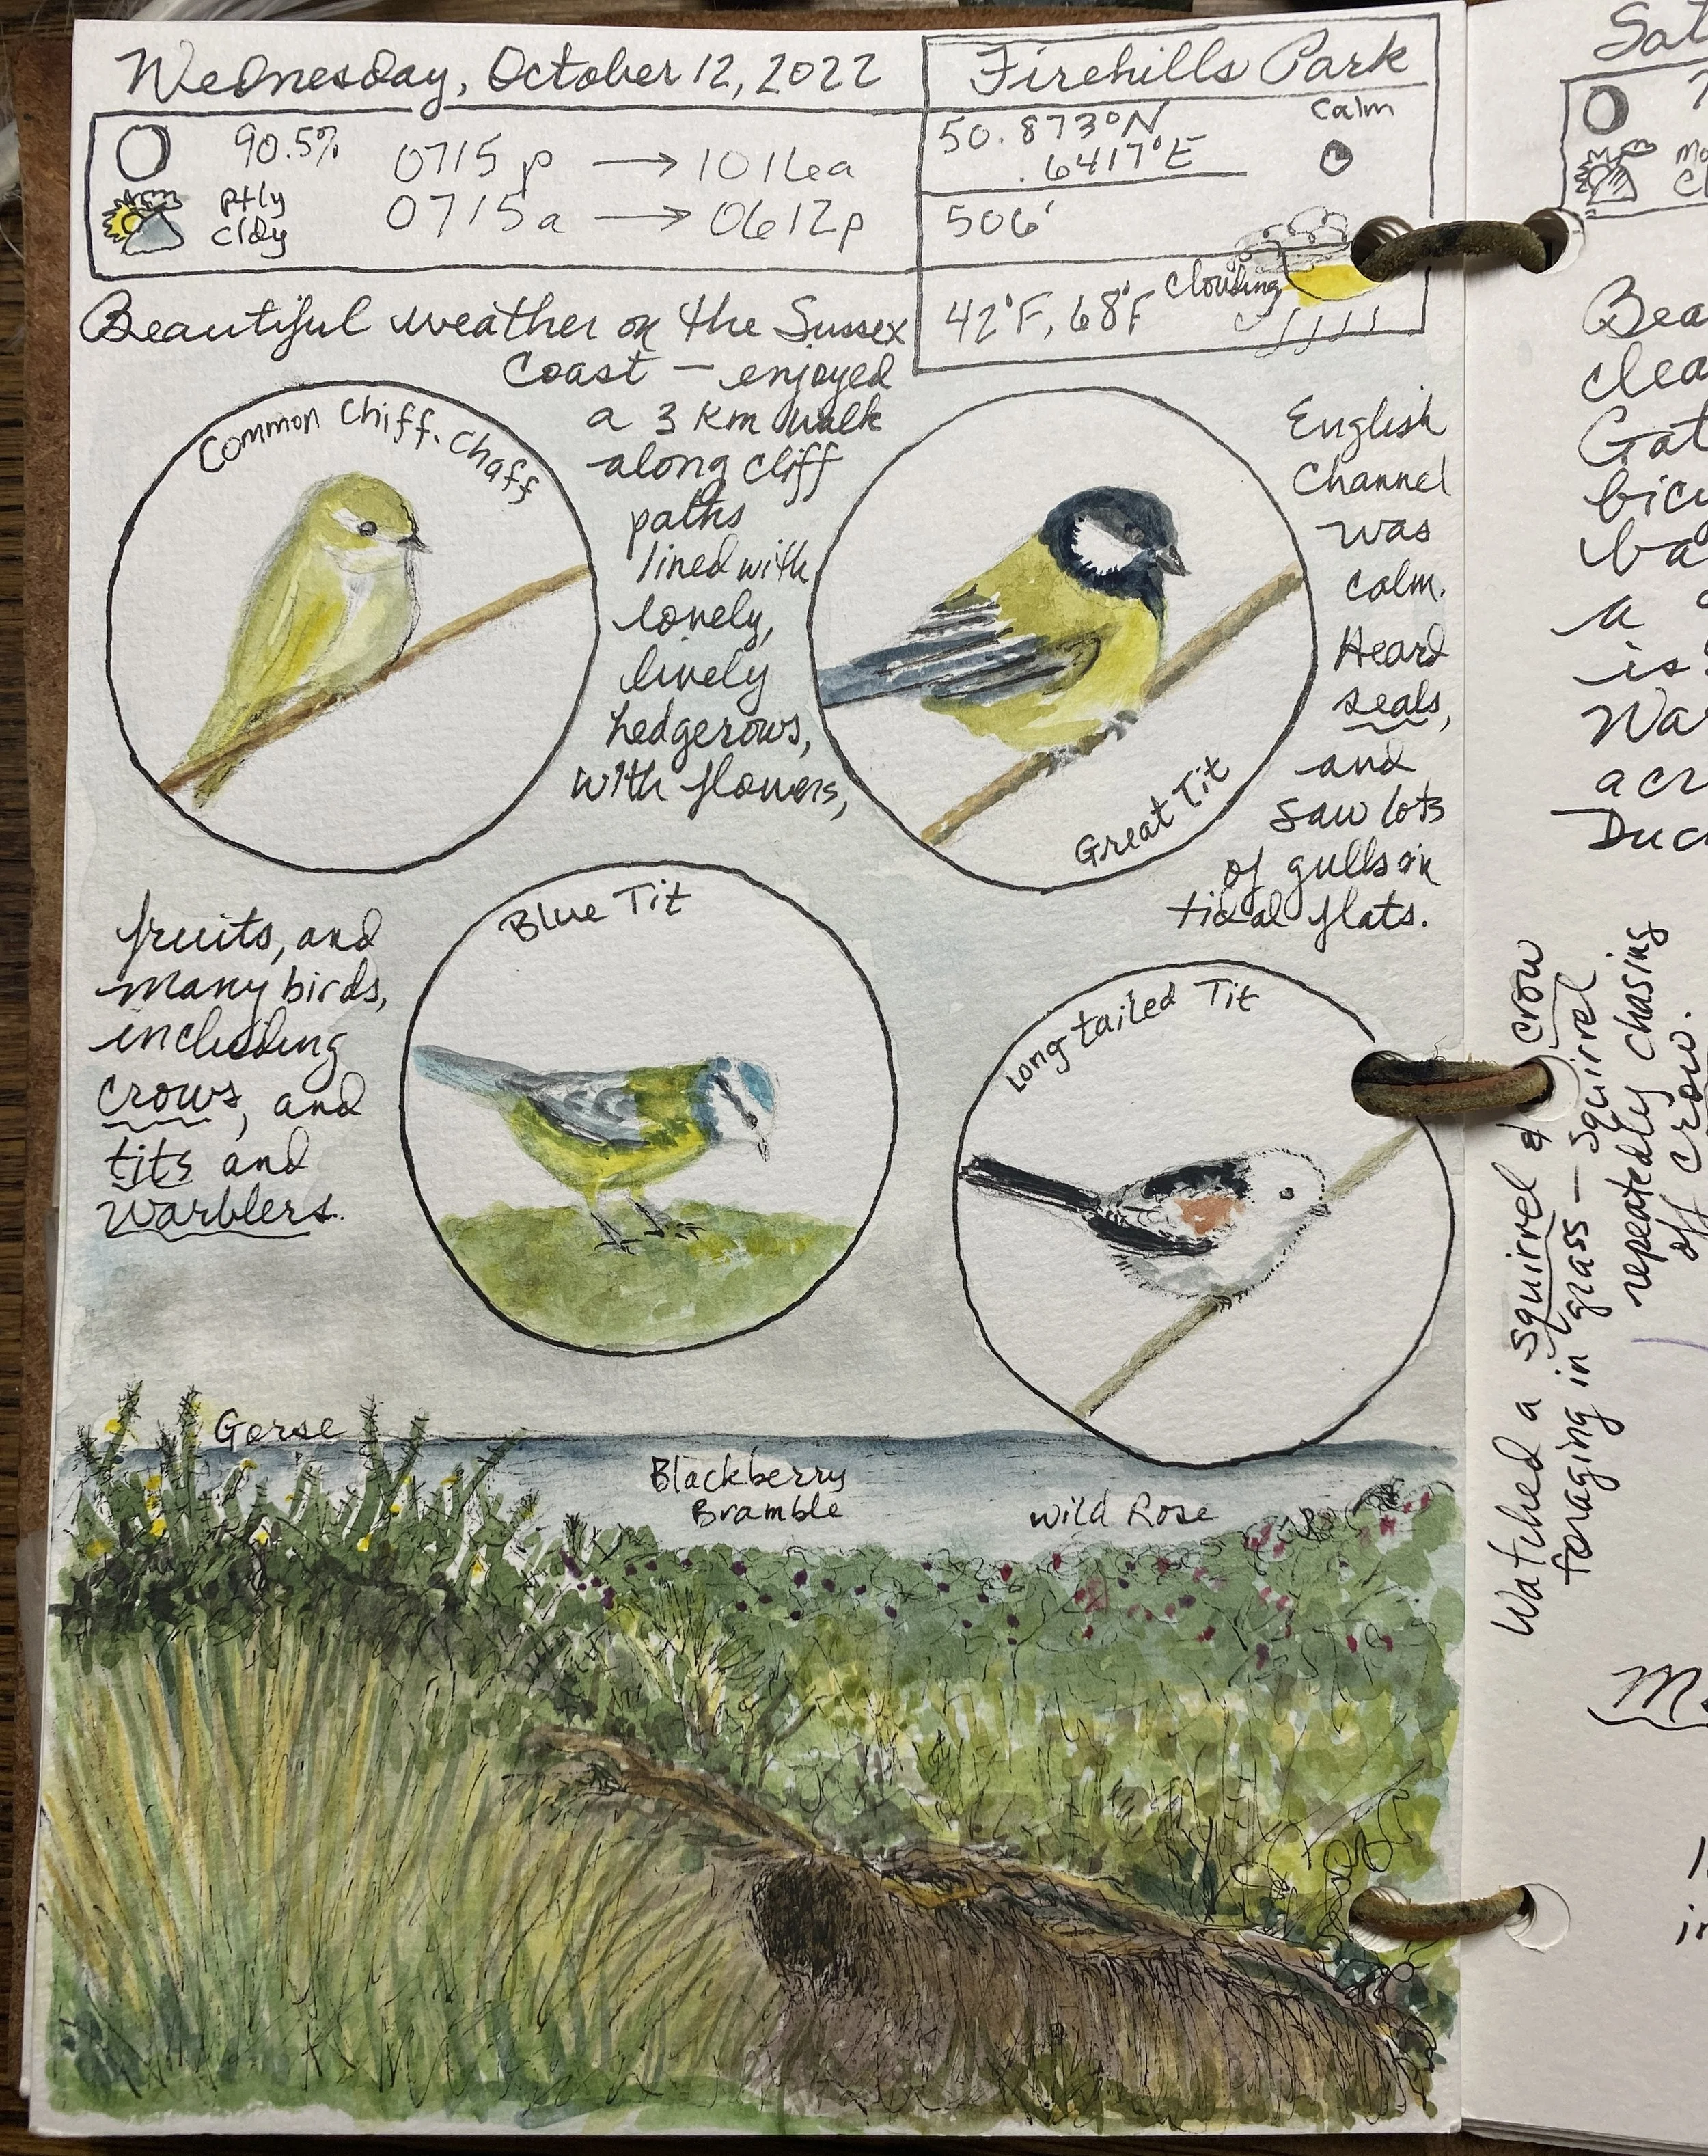 Wednesday, October 12, 2022
90.5%
0715p → 1016a
ptly
cldy
0715a → 0612p
Firehills Park
50.873°N
.6417°E
Calm
506'
42°F, 68°F
Clouding
Beautiful weather on the Sussex
Coast — enjoyed
a 3 km walk
along cliff
paths
lined with
lovely,
lively
hedgerows,
with flowers,
fruits, and
many birds,
including
crows, and
tits and
warblers.
English
Channel
was
calm.
Heard
seals,
and
saw lots
of gulls on
tidal flats.
Common Chiff-Chaff
Great Tit
Blue Tit
Long-tailed Tit
Gorse
Blackberry
Bramble
Wild Rose
Watched a squirrel & crow
foraging in grass — squirrel
repeatedly chasing
off crow.